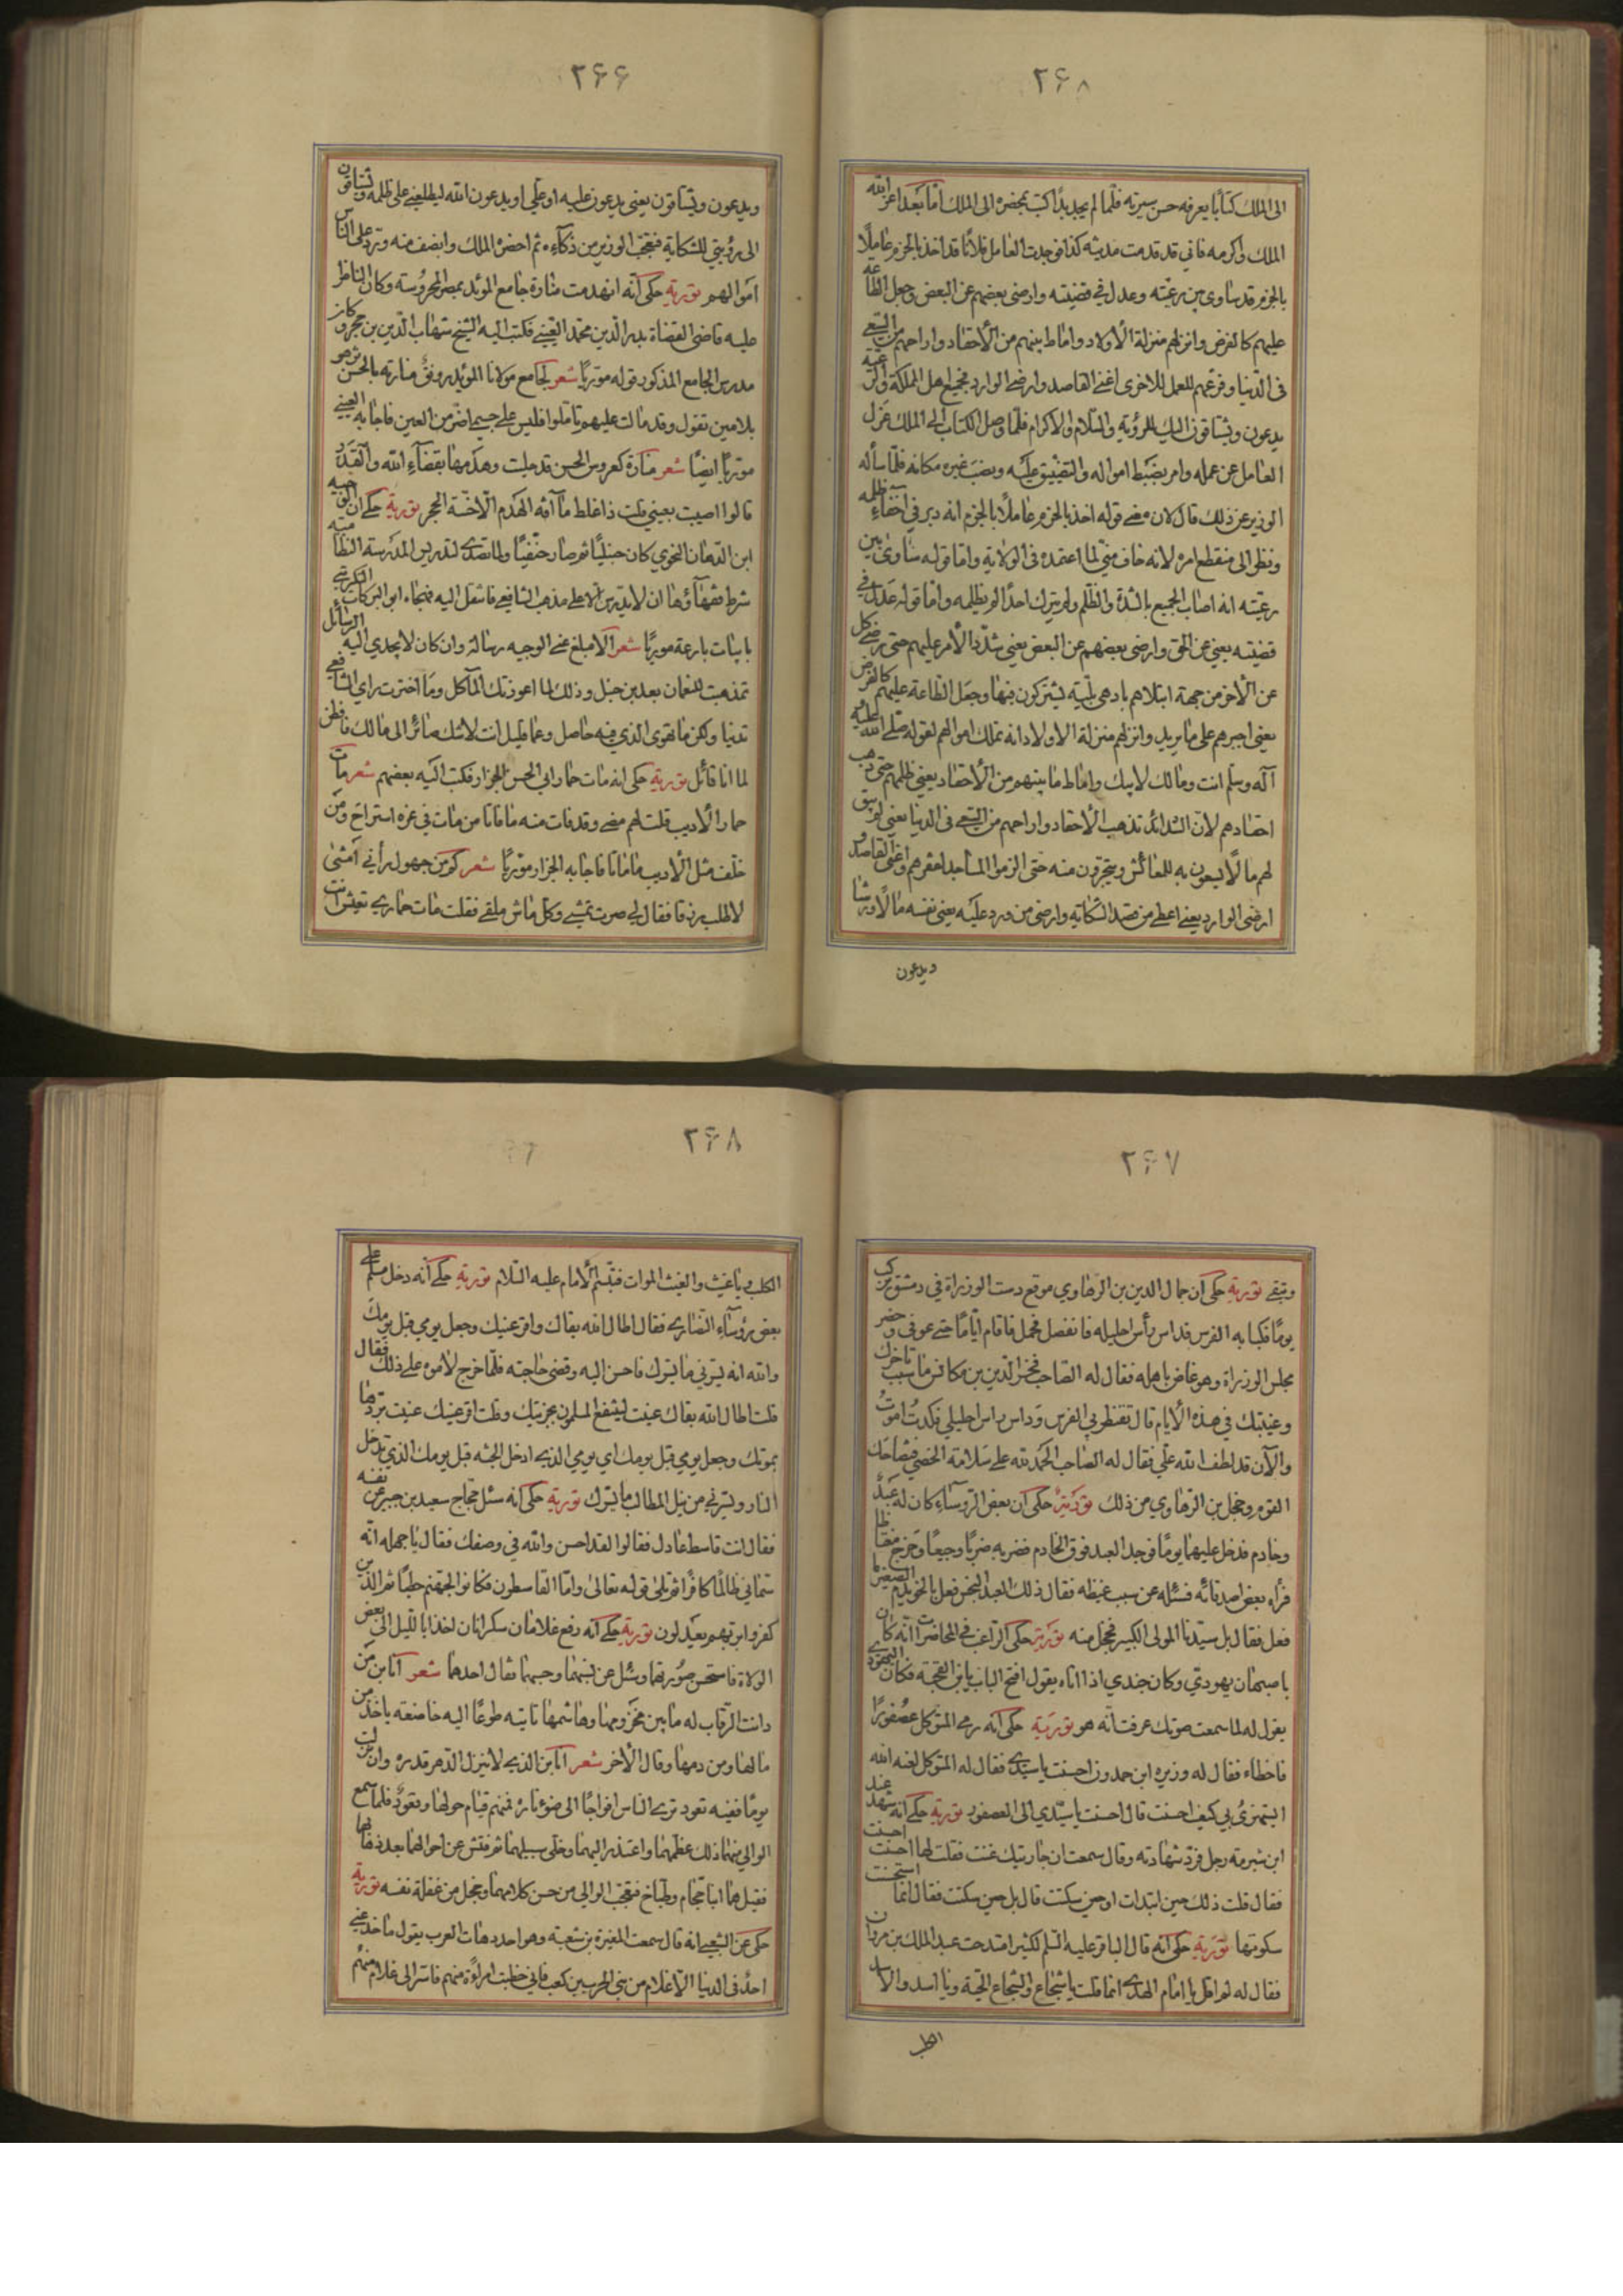 ۲۶۸
الى الملك كتابا يعرفه حسن سيرته فلما لم يجد بدا كتب بحضره الى الملك اما بعد اعز الله
الملك واكرمه فاني قد قدمت مدينة كذا فوجدت العامل فلانا قد اخذ بالجزم عاملا
بالجزم قد ساوى بين رعيته وعدل في قضيته وارضى بعضهم عن البعض وجعل الطاعة
عليهم كالفرض وانزلهم منزلة الاولاد واماط بينهم من الاحقاد واراحهم من السعي
فى الدنيا وفرغهم للعمل للاخرى اغنى القاصد وارضى الوارد فجميع اهل المملكة والرعية
يدعون ويشتاقون اليك للرؤية والسلام والاكرام فلما وصل الكتاب الى الملك عزل
العامل عن عمله وامر بضبط امواله والتضييق عليه ونصب غيره مكانه فلما سأله
الوزير عن ذلك قال كان معنى قوله اخذ بالحزم عاملا بالجزم انه دبر في اخفاء ظلمه
ونظر الى منقطع امره لانه خاف منى لما اعتمده فى الولاية واما قوله ساوى بين
رعيته انه اصاب الجميع بالشدة والظلم ولم يترك احدا لم يظلمه واما قوله عدل في
قضيته يعني عن الحق وارضى بعضهم عن البعض يعني شدد الامر عليهم حتى رضى كل
عن الاخر من جهة ابتلاهم بادهى بلية يشتركون فيها وجعل الطاعة عليهم كالفرض
يعني اجبرهم على ما يريد وانزلهم منزلة الاولاد انه تملك اموالهم لقوله صلى الله عليه
آله وسلم انت ومالك لابيك واماط ما بينهم من الاحقاد يعني ظلمهم حتى ذهب
احقادهم لان الشدائد تذهب الاحقاد واراحهم من السعي فى الدنيا يعنى لم يبق
لهم مالا يسعون به للمعائش ويتجرون منه حتى الزموا المساجد لفقرهم واغنى القاصد و
ارضى الوارد يعنى اعطى من قصد الشكاية وارضى من ورد عليه يعنى نفسه مالا ورشا
ويدعون
۲۶۶
ويدعون ويشتاقون يعنى يدعون عليه او علي او يدعون الله ليطلعني على ظلمه ويشتاقون
الى رؤيتي للشكاية فتعجب الوزير من ذكاءه ثم احضره الملك وانصف منه ورد على الناس
اموالهم تورية حكى انه انهدمت منارة جامع المؤيد بمصر المحروسة وكان الناظر
عليه قاضى القضاة بدر الدين محمد العينى فكتب اليه الشيخ شهاب الدين بن حجر وكان
مدرس الجامع المذكور قوله موريا شعر لجامع مولانا المؤيد رونق منارته بالحسن تزهو
بلا مين تقول وقد مالت عليهم تاملوا فليس على جسمي اضر من العين فاجابه العينى
موريا ايضا شعر منارة كعروس الحسن قد جليت وهدمها بقضاء الله والقدر
قالوا اصيبت بعيني قلت ذا غلط ما آفة الهدم الا خسة الحجر تورية حكى ان الوجيه
ابن الدهان النحوي كان حنبليا ثم صار حنفيا ولما تصدى لتدريس المدرسة النظامية
شرط فقهاؤها ان لا يدرس الا على مذهب الشافعى فانتقل اليه فهجاه ابو البركات التكريتي
بابيات بارعة موريا شعر الا مبلغ عنى الوجيه رسالة وان كان لا يجدي اليه الرسائل
تمذهبت للنعمان بعد بن حنبل وذلك لما اعوزتك المآكل وما اخترت راي الشافعي
تدينا ولكن ما تهوى الذي فيه حاصل وعما قليل انت لا شك صائر الى مالك فافطن
لما انا قائل تورية حكى انه مات حمار ابي الحسن الجزار فكتب اليه بعضهم شعر مات
حمار الاديب قلت لهم مضى وقد فات منه ما فاتا من مات في عزه استراح ومن
خلف مثل الاديب ما ماتا فاجابه الجزار موريا شعر كم من جهول رأني امشى
لاطلب رزقا فقال لي صرت تمشي وكل ماش ملقى فقلت مات حماري تعيش انت
۲۶۷
وتبقى تورية حكى ان جمال الدين بن الرهاوي موقع دست الوزارة في دمشق ركب
يوما فكبا به الفرس فداس رأس احليله فانفصل فحمل فاقام اياما حتى عوفى وحضر
مجلس الوزارة وهو غاض باهله فقال له الصاحب فخر الدين بن مكانس ما سبب تاخرك
وغيبتك في هذه الايام قال تقنطر بي الفرس وداس راس احليلي فكدت اموت
والآن قد لطف الله علي فقال له الصاحب الحمد لله على سلامة الخصي فتضاحك
القوم وخجل بن الرهاوي من ذلك تورية حكى ان بعض الروساء كان له عبد
وخادم فدخل عليهما يوما فوجد العبد فوق الخادم فضربه ضربا وجيعا وخرج مغتاظا
فرآه بعض اصدقائه فسئله عن سبب غيظه فقال ذلك العبد النجس فعل بالخويدم الصغير ما
فعل فقال بل سيدنا المولى الكبير فخجل منه تورية حكى الراغب في المحاضرات انه كان
باصبهان يهودي وكان جندي اذا اتاه يقول افتح الباب يا بن القحبة فكان اليهودي
يقول له لما سمعت صوتك عرفت انه هو تورية حكى انه رمى المتوكل عصفورا
فاخطاء فقال له وزيره ابن حمدون احسنت يا سيدى فقال له المتوكل لعنه الله
اتتهزئ بي كيف احسنت قال احسنت يا سيدي الى العصفور تورية حكى انه شهد عند
ابن شبرمة رجل فرد شهادته وقال سمعت ان جاريتك غنت فقلت لها احسنت
فقال قلت ذلك حين ابتدات او حين سكتت قال بل حين سكتت فقال انما استحسنت
سكوتها تورية حكى انه قال الباقر عليه السلم لكثير امتدحت عبد الملك بن مروان
فقال له لم اقل يا امام الهدى انما قلت يا شجاع والشجاع الحية ويا اسد والاسد
الكلب
۲۶۸
الكلب ويا غيث والغيث الموات فتبسم الامام عليه السلام تورية حكى انه دخل مسلم على
بعض رؤساء النصارى فقال اطال الله بقاك واقر عينيك وجعل يومي قبل يومك
والله انه يسرني ما يسرك فاحسن اليه وقضى حاجته فلما خرج لاموه على ذلك فقال
قلت اطال الله بقاك عنيت لينتفع المسلمون بجزيتك وقلت اقر عينيك عنيت بردها
بموتك وجعل يومي قبل يومك اي يومي الذي ادخل الجنة قبل يومك الذي تدخل
النار ويسرني من نيل المطالب ما يسرك تورية حكى انه سئل حجاج سعيد بن جبير عن نفسه
فقال انت قاسط عادل فقالوا لقد احسن والله في وصفك فقال يا جهلة انه
سماني ظالما كافرا ثم تلى قوله تعالى واما القاسطون فكانوا لجهنم حطبا ثم الذين
كفروا بربهم يعدلون تورية حكى انه دفع غلامان سكرانان اخذا بالليل الى بعض
الولاة فاستحسن صورتهما وسئل عن نسبهما وحسبهما فقال احدهما شعر انا بن من
دانت الرقاب له ما بين مخزومها وهاشمها تاتيه طوعا اليه خاضعة ياخذ من
مالها ومن دمها وقال الاخر شعر انا بن الذي لا ينزل الدهر قدره وان نزلت
يوما فقيه تعود ترى الناس افواجا الى ضوء ناره فمنهم قيام حولها وقعود فلما سمع
الوالي منهما ذلك عظمهما واعتذر اليهما وخلى سبيلهما ثم فتش عن احوالهما بعد ذهابهما
فقيل هما ابنا حجام وطباخ فتعجب الوالي من حسن كلامهما وخجل من غفلة نفسه تورية
حكى عن الشعبي انه قال سمعت المغيرة بن شعبة وهو احد دهات العرب يقول ما خدعني
احد فى الدنيا الا غلام من بني الحرث بن كعب فاني خطبت امراءة منهم فاسر الى غلام منهم